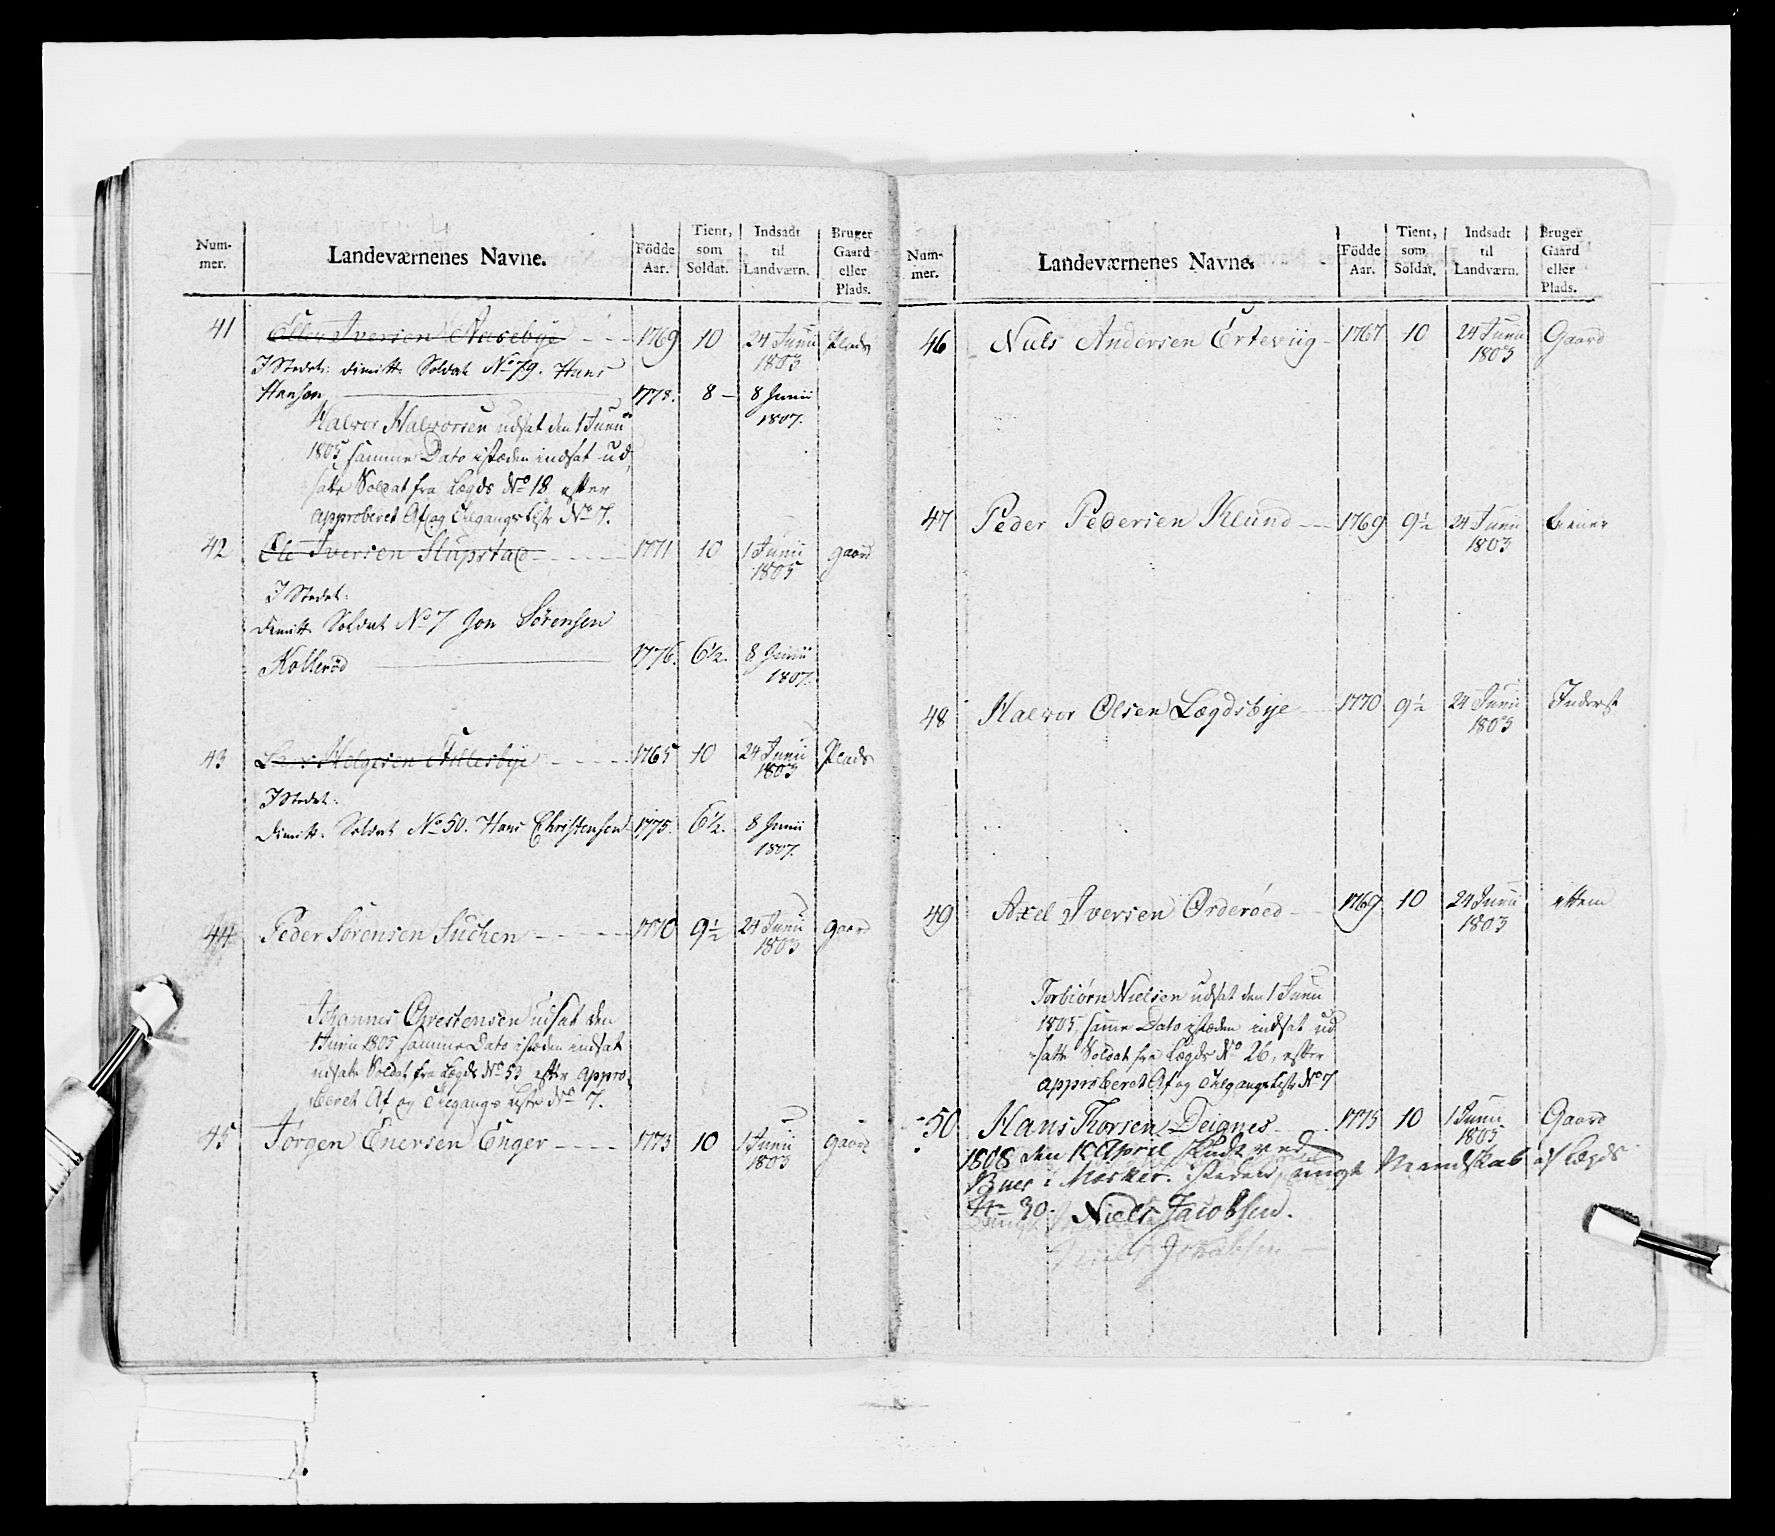 Num-
mer.
Landeværnenes Navne.
Födde
Aar.
Tient,
som
Soldat.
Indsadt
til
Landværn.
Bruger
Gaard
eller
Plads.
41 Iversen Aasebye 1769 10 24 Junii Plads
1803
I Stedet: dimitt. Soldat No 79. Hans
Hansen 1778. 8 8 Junii
1807.
Halvor Halvorsen udsat den 1 Junii
1805 samme Dato isteden indsat ud,
satte Soldat fra Lægds No 18 efter
approberet Af og Tilgangs Liste No 7.
42 Ole Iversen Slupstad 1771 10 1 Junii gaard
1805
I Stedet:
dimitt. Soldat No 7 Jon Sörensen
Kollerød 1776. 6½. 8 Junii
1807.
43 Helgesen 1765 10 24 Junii Plads
1803
I Stedet:
Dimitt. Soldat No 50. Hans Christensen 1775. 6½. 8 Junii
1807.
44 Peder Sørensen Suchen 1770 9½ 24 Junii gaard
1803
Johannes Christensen udsat den
1 Junii 1805 samme Dato isteden indsat
udsatte Soldat fra Lægds No 53 efter appro,
beret Af og Tilgangs Liste No 7.
45 Jørgen Enersen Enger 1773 10 1 Junii gaard
1803
Num-
mer.
Landeværnenes Navne.
Födde
Aar.
Tient,
som
Soldat.
Indsadt
til
Landværn.
Bruger
Gaard
eller
Plads.
46 Niels Andersen Erteviig 1767 10 24 Junii Gaard
1803
47 Peder Pedersen Klund 1769 9½ 24 Junii
1803
48 Halvor Olsen Lægdsbye 1770 9½ 24 Junii Inderst
1803
49 Axel Iversen Ørderøed 1769 10 24 Junii
1803
Torbiørn Nielsen udsat den 1 Junii
1805, samme Dato isteden indsat ud
satte Soldat fra Lægds No 26, efter
approberet Af og Tilgangs Liste No 7
50 Hans Thorsen Deignes 1775 10 1 Junii Gaard
1803
1808 den April Skudt ved
i istedet ungt Mandskab af Lægds
No 30. Niels Jacobsen.
Niels Jacobsen